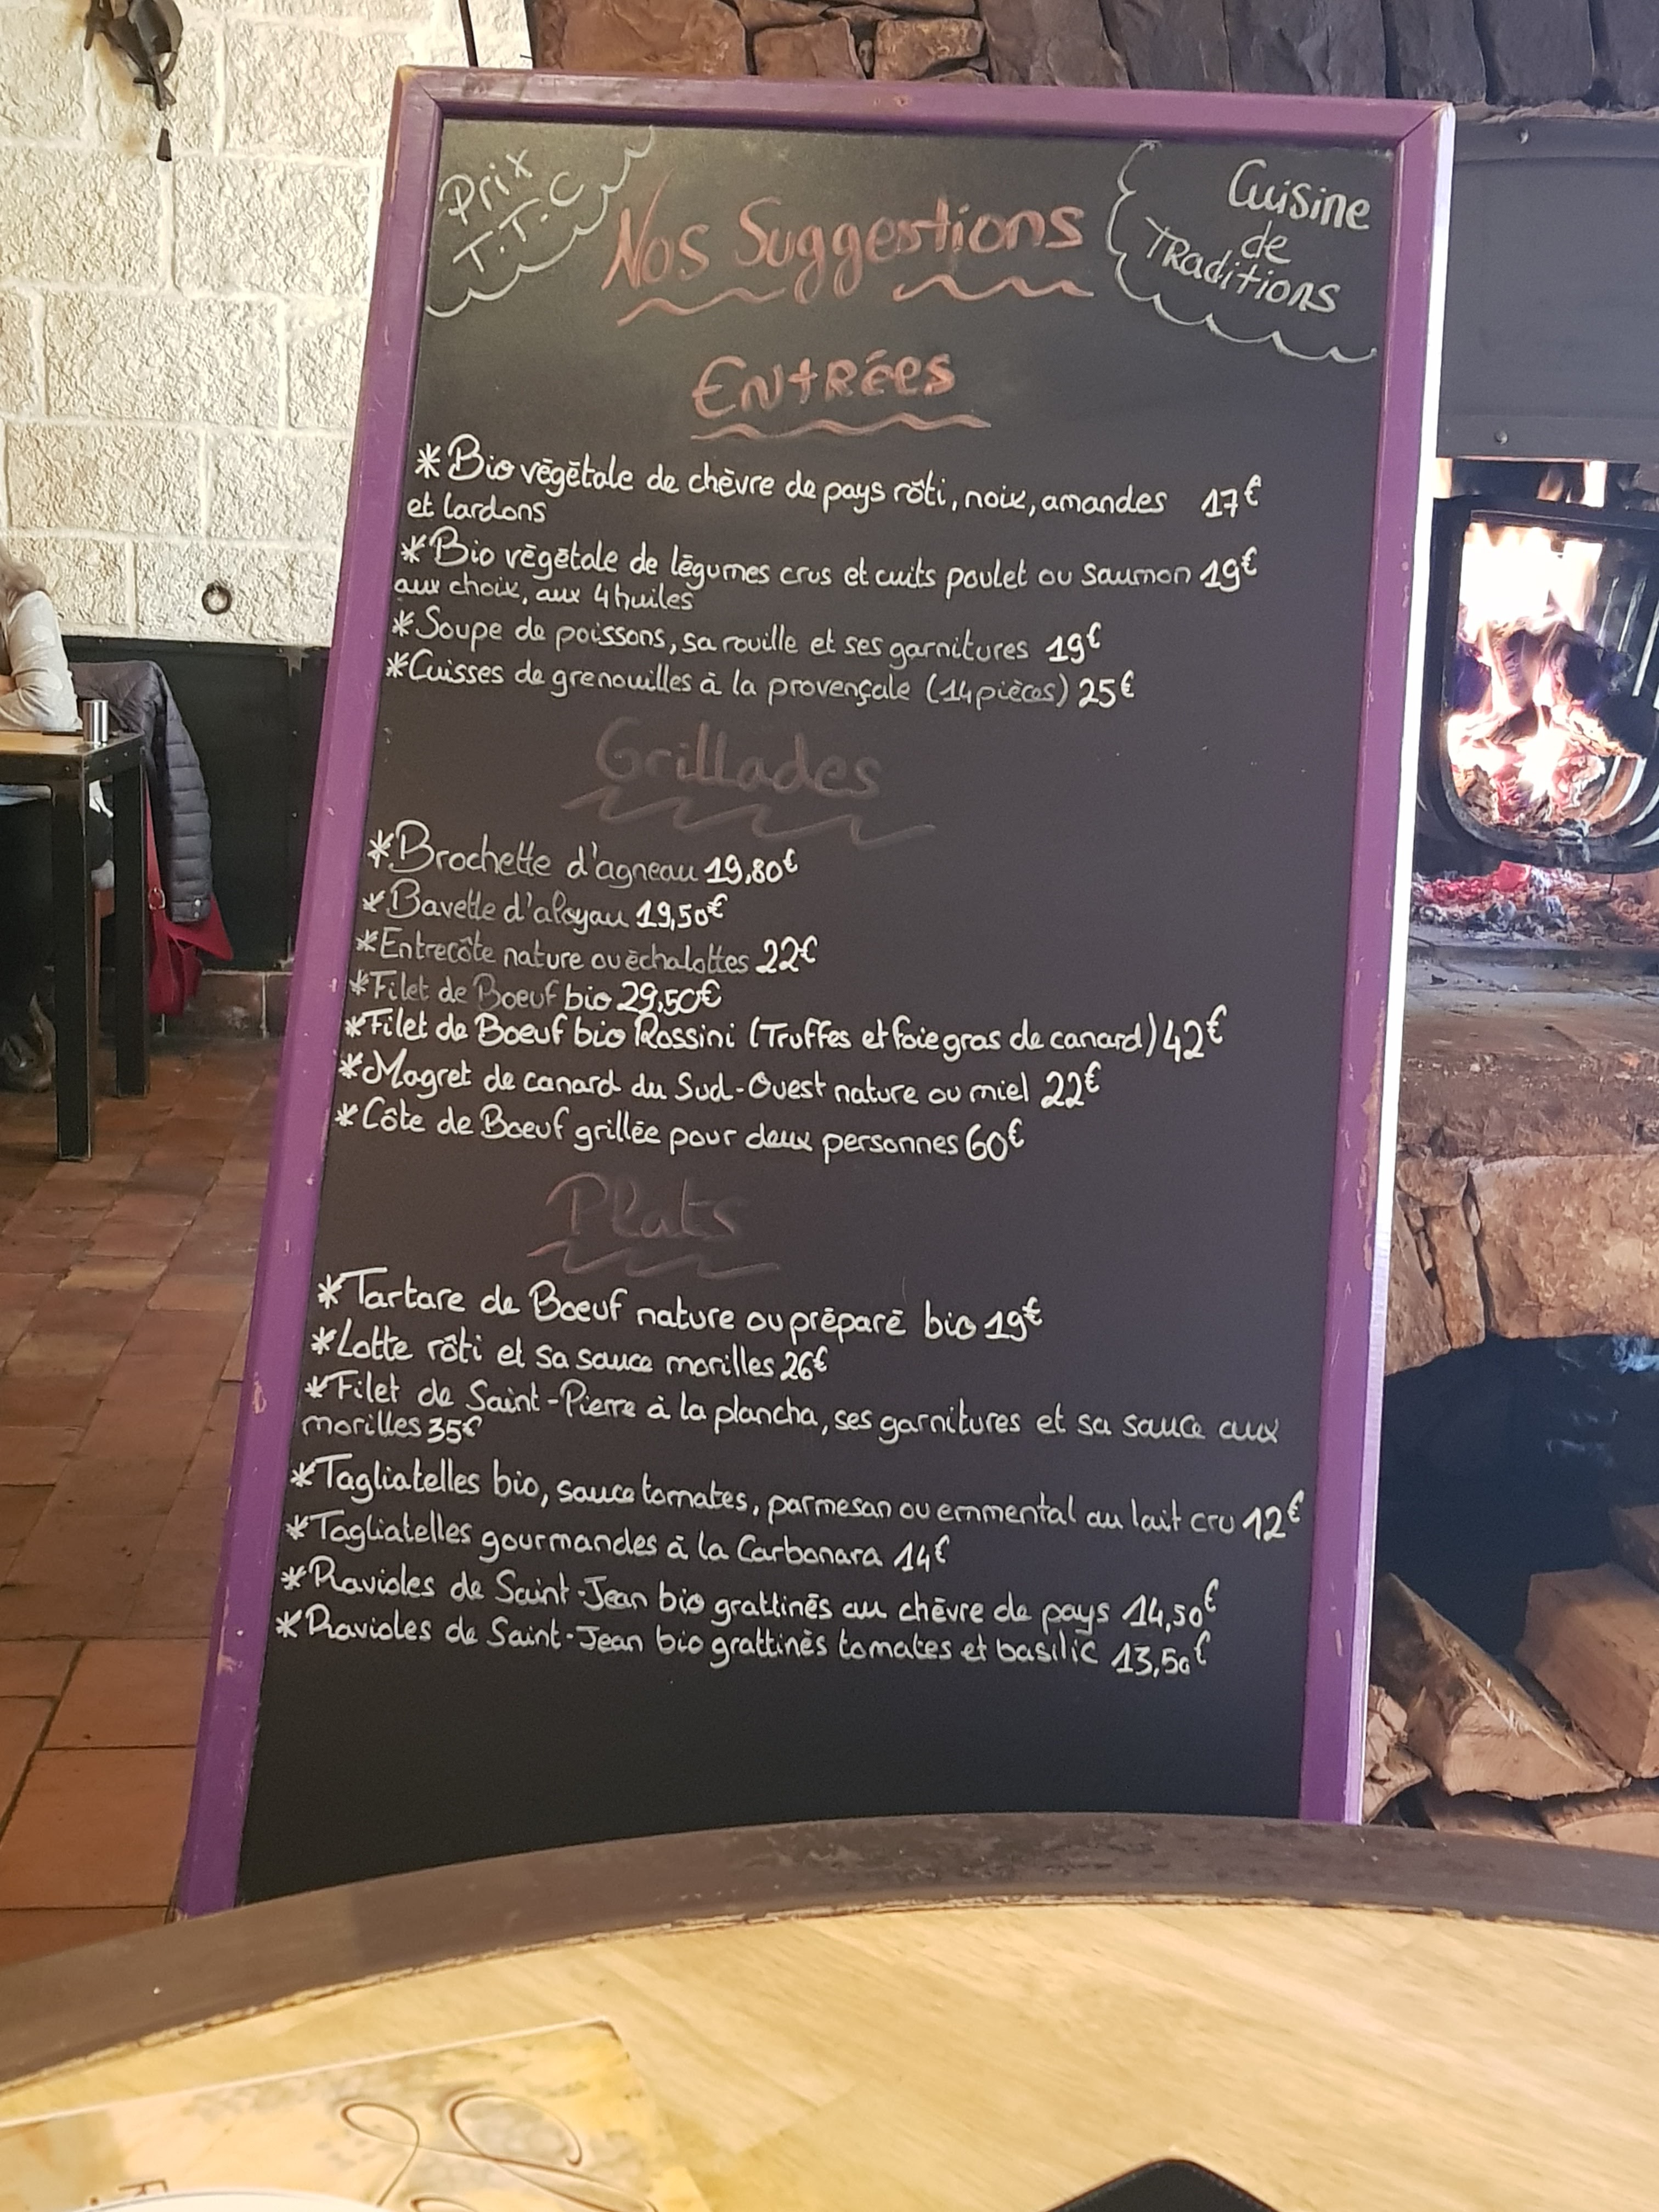 Prix
T.T.C
Nos Suggestions
Cuisine
de
TRaditions
EntRées
*Bio végétale de chèvre de pays rôti, noix, amandes 17€
et lardons
*Bio végétale de légumes crus et cuits poulet ou saumon 19€
aux choix, aux 4 huiles
*Soupe de poissons, sa rouille et ses garnitures 19€
*Cuisses de grenouilles à la provençale (14 pièces) 25€
Grillades
*Brochette d'agneau 19,80€
*Bavette d'aloyau 19,50€
*Entrecôte nature ou échalottes 22€
*Filet de Boeuf bio 29,50€
*Filet de Boeuf bio Rossini (Truffes et foie gras de canard) 42€
*Magret de canard du Sud-Ouest nature ou miel 22€
*Côte de Boeuf grillée pour deux personnes 60€
Plats
*Tartare de Boeuf nature ou préparé bio 19€
*Lotte rôti et sa sauce morilles 26€
*Filet de Saint-Pierre à la plancha, ses garnitures et sa sauce aux
morilles 35€
*Tagliatelles bio, sauce tomates, parmesan ou emmental au lait cru 12€
*Tagliatelles gourmandes à la Carbonara 14€
*Ravioles de Saint-Jean bio grattinés au chèvre de pays 14,50€
*Ravioles de Saint-Jean bio grattinés tomates et basilic 13,50€